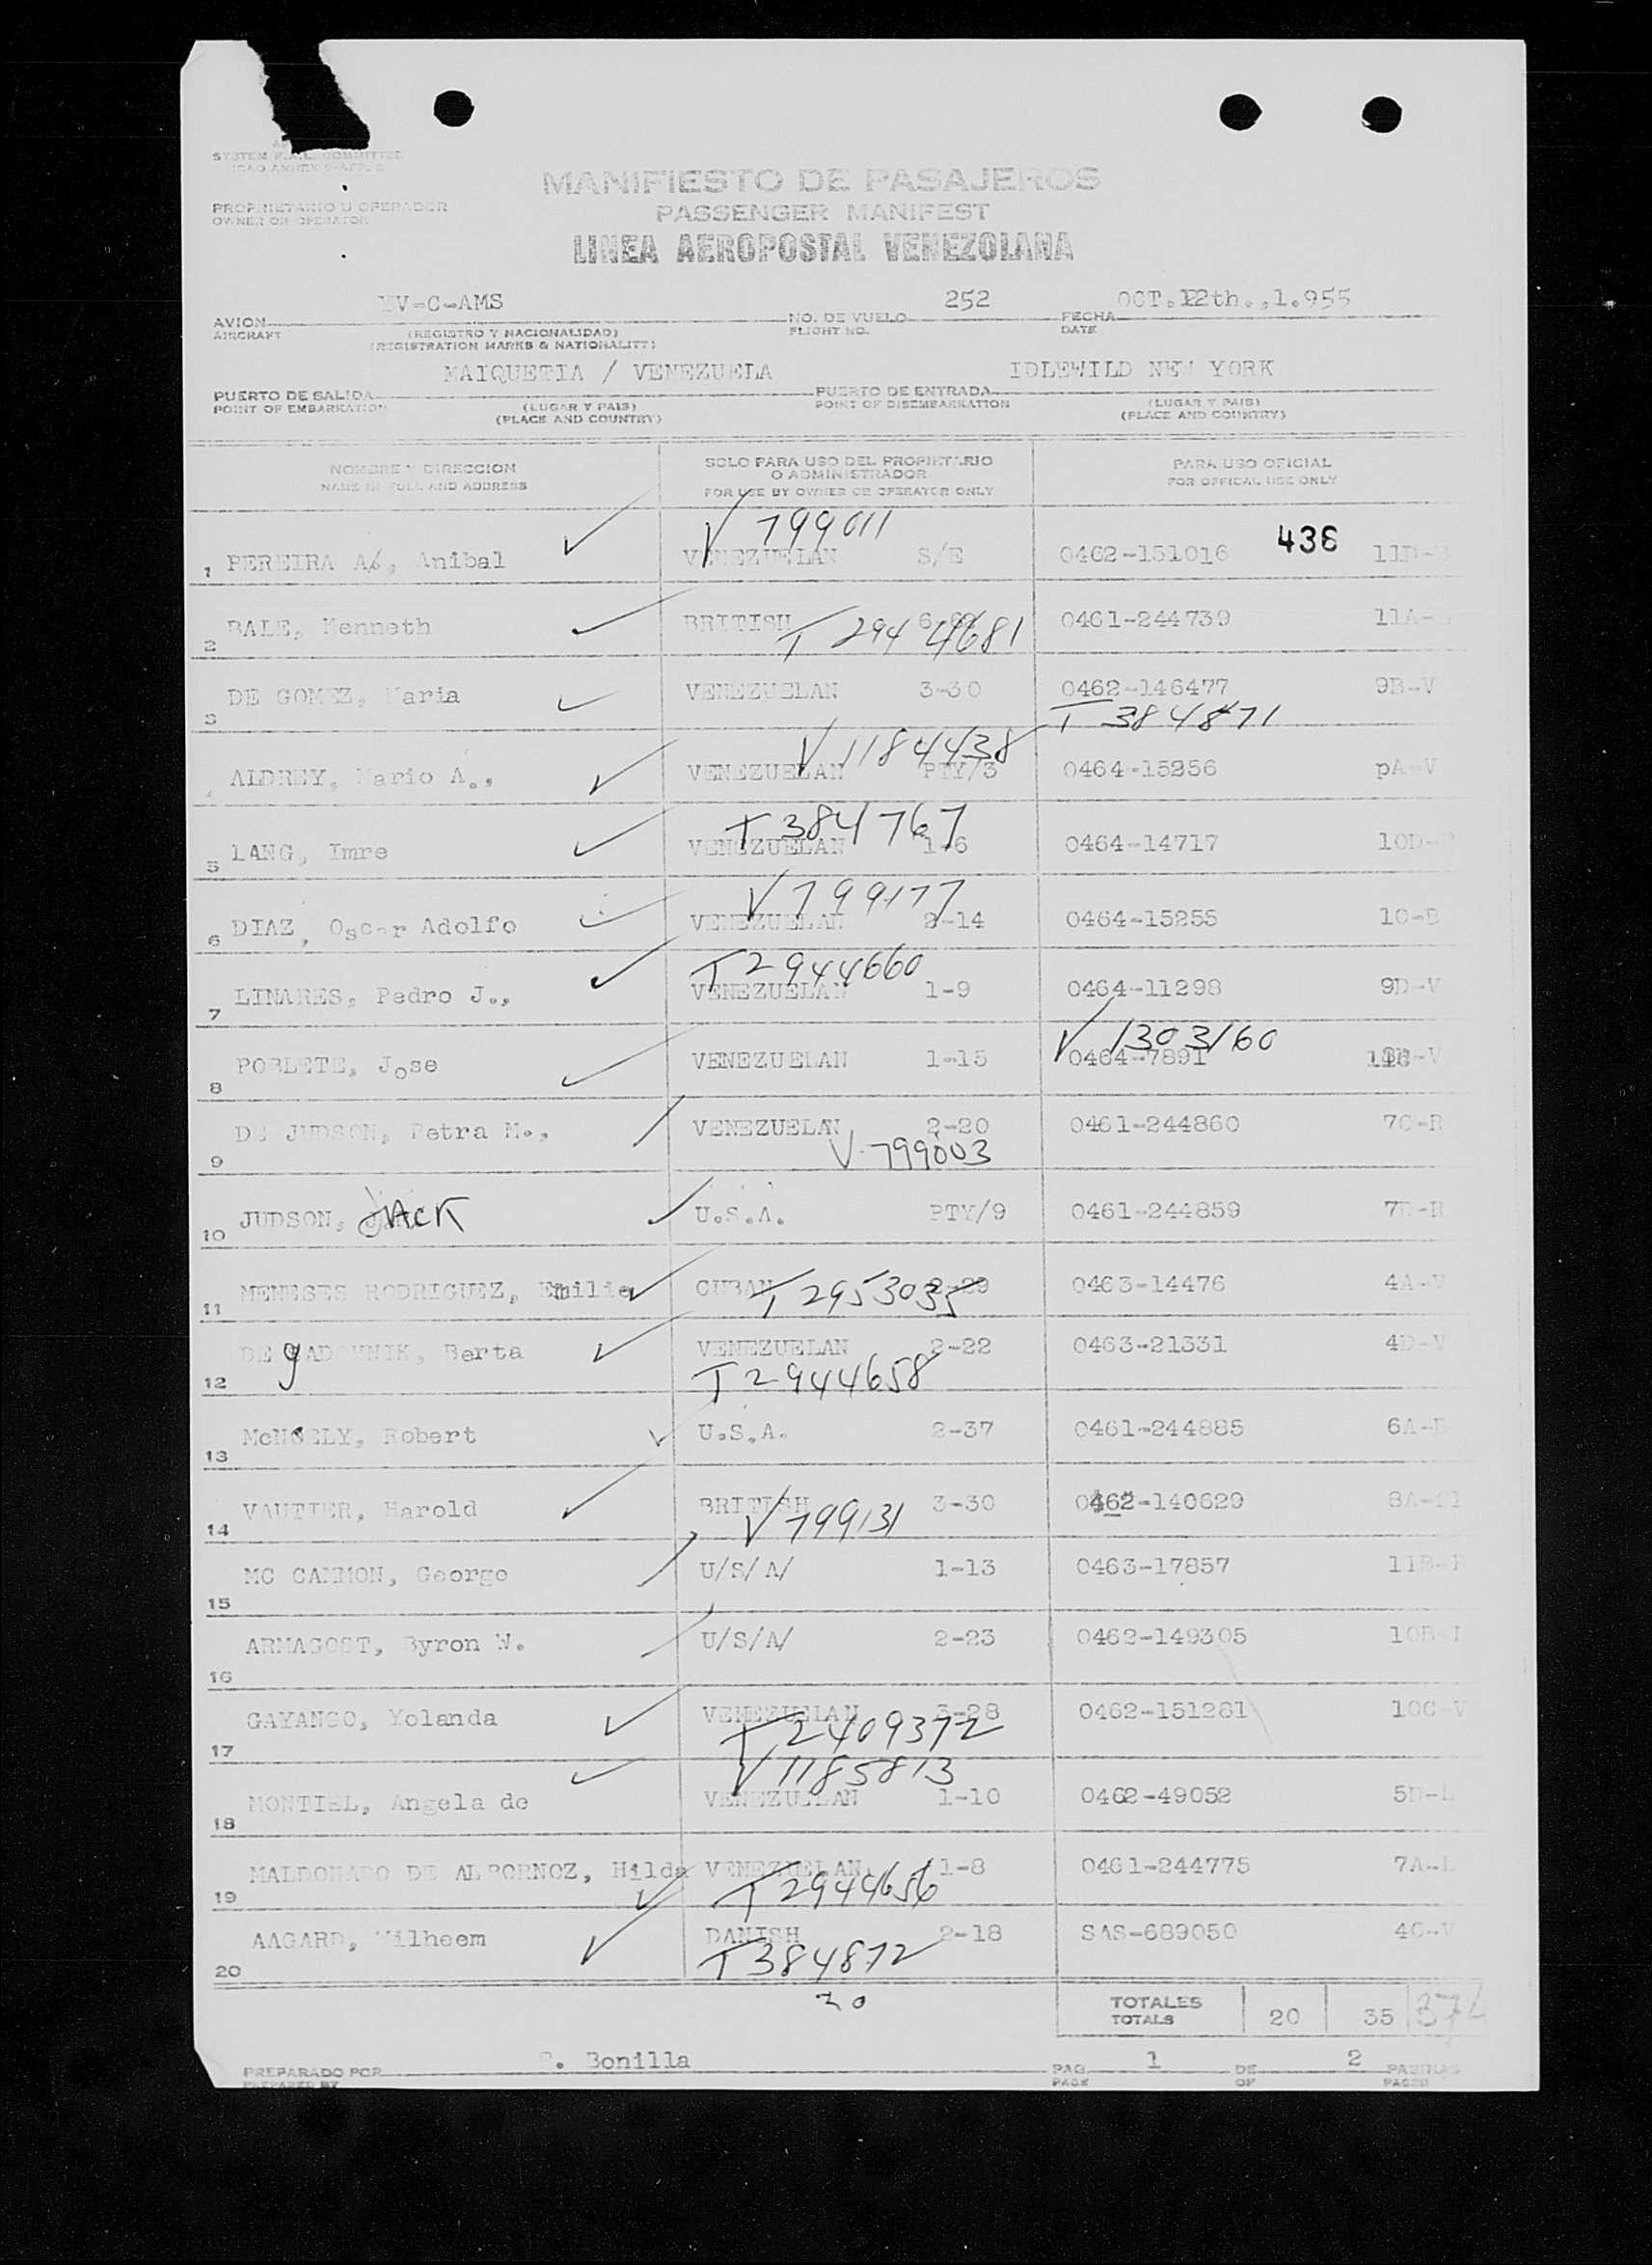 SYSTEM
PROPRIETARIO U OPERADOR
OWNER OR OPERATOR
MANIFIESTO DE PASAJEROS
PASSENGER MANIFEST
LINEA AEROPOSTAL VENEZOLANA
YV-C-AMS 252 OCT.12th.,1.955
AVION NO. DE VUELO FECHA
AIRCRAFT (REGISTRO Y NACIONALIDAD) FLIGHT NO. DATE
(REGISTRATION MARKS & NATIONALITY)
MAIQUETIA / VENEZUELA IDLEWILD NEW YORK
PUERTO DE SALIDA PUERTO DE ENTRADA
POINT OF EMBARKATION (LUGAR Y PAIS) POINT OF DISEMBARKATION (LUGAR Y PAIS)
(PLACE AND COUNTRY) (PLACE AND COUNTRY)
NOMBRE Y DIRECCION SOLO PARA USO DEL PROPIETARIO O ADMINISTRADOR PARA USO OFICIAL
NAME IN FULL AND ADDRESS FOR USE BY OWNER OR OPERATOR ONLY FOR OFFICAL USE ONLY
V 799011
1 PEREIRA A/, Anibal VENEZUELAN S/E 0462-151016 436
2 BALE, Kenneth BRITISH T 2944681 0461-244739
3 DE GOMEZ, Maria VENEZUELAN 3-30 0462-146477 9B-V
T 384871
V 1184438
ALDREY, Mario A., VENEZUELAN PTY/3 0464-15256 pA-V
T 384767
5 LANG, Imre VENEZUELAN 1-6 0464-14717
V 799177
6 DIAZ, Oscar Adolfo VENEZUELAN 2-14 0464-15255 10-B
T 2944660
7 LINARES, Pedro J., VENEZUELAN 1-9 0464-11298 9D-V
V 1303160
8 POBLETE, Jose VENEZUELAN 1-15 0464-7891
9 DE JUDSON, Petra M., VENEZUELAN 2-20 0461-244860 7C-R
V-799003
10 JUDSON, JACK U.S.A. PTY/9 0461-244859 7D-R
11 MENESES RODRIGUEZ, Emilie CUBAN T 2953035 0463-14476 4A-V
12 DE gADOVNIK, Berta VENEZUELAN 2-22 0463-21331 4D-V
T 2944658
13 McNEELY, Robert U.S.A. 2-37 0461-244885
14 VAUTIER, Harold BRITISH 3-30 0462-140629
V 799131
15 MC CAMMON, George U/S/A/ 1-13 0463-17857
16 ARMAGOST, Byron W. U/S/A/ 2-23 0462-149305
17 GAYANGO, Yolanda VENEZUELAN 3-28 0462-151281 10C-V
T 2409372
V 1185813
18 MONTIEL, Angela de VENEZUELAN 1-10 0462-49052
19 MALDONADO DE ALBORNOZ, Hilda VENEZUELAN 1-8 0461-244775
T 2944656
20 AAGARD, Wilheem DANISH 2-18 SAS-689050 4C-V
T 384872
20
TOTALES
TOTALS 20 35
Bonilla 1 2
PREPARADO POR PAG DE PAGINAS
PREPARED BY PAGE OF PAGES